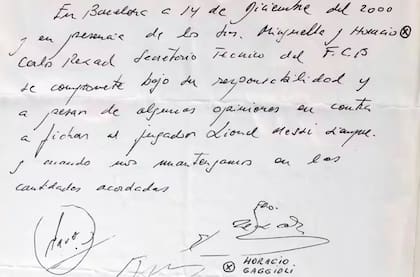 En Barcelona a 14 de Diciembre del 2000
y en presencia de los Sres. Minguella y Horacio ⓧ
Carlos Rexach Secretario Técnico del F.C.B
se compromete bajo su responsabilidad y
a pesar de algunas opiniones en contra
a fichar al jugador Lionel Messi siempre
y cuando nos mantengamos en las
cantidades acordadas
ⓧ HORACIO
GAGGIOLI